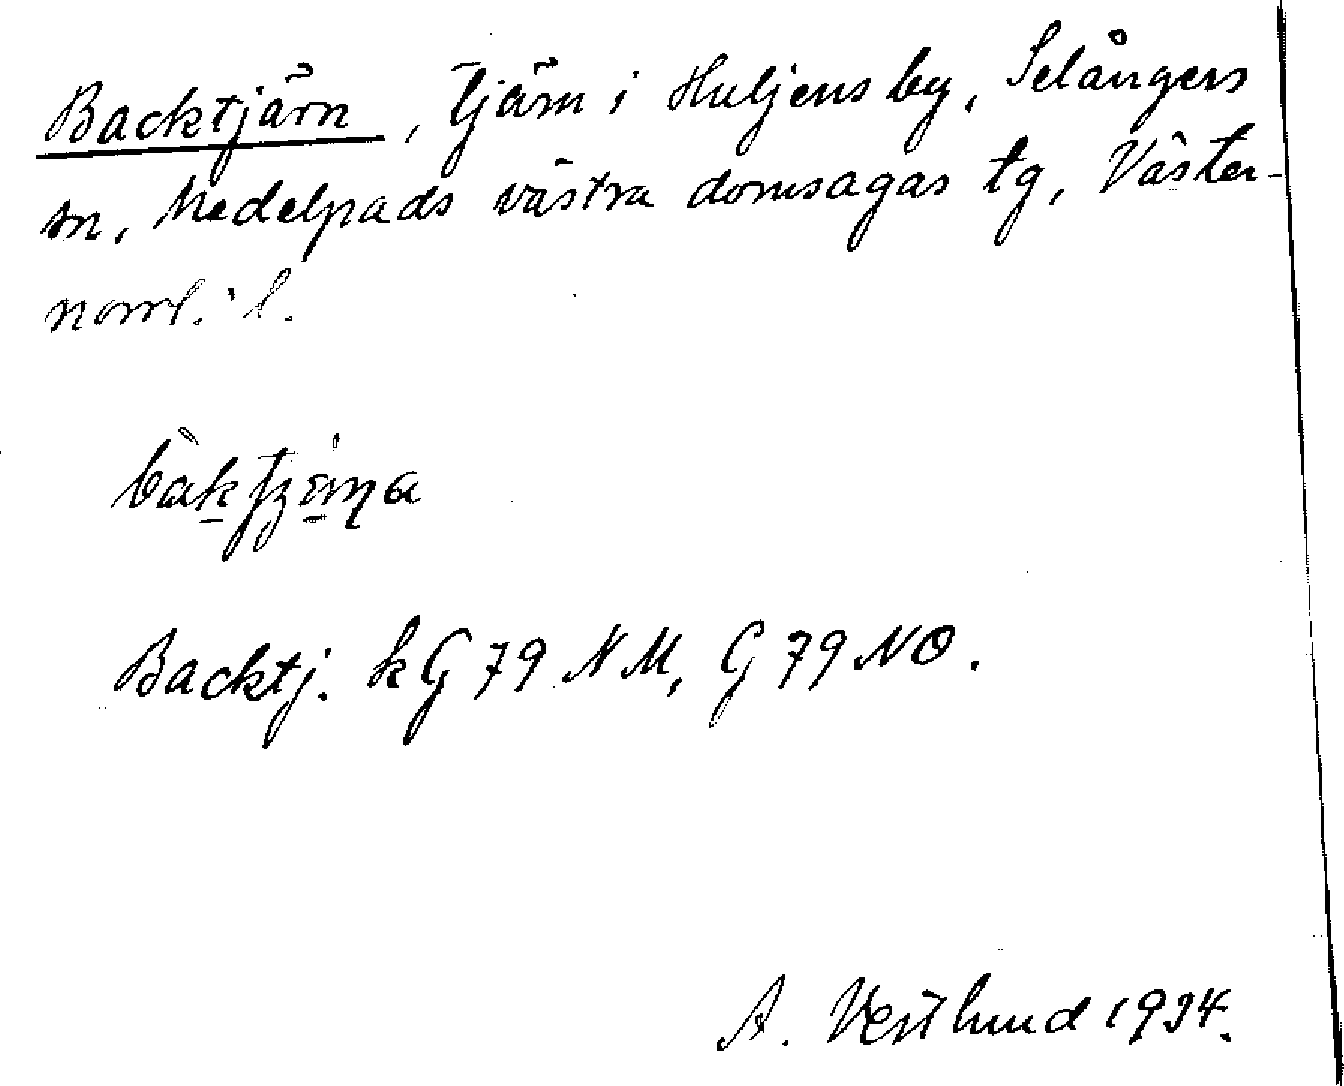 Backtjärn, tjärn i Huljens by, Selångers
sn, Medelpads västra domsagas tg, Väster-
norrl. l.
Backtj. kG 79 NM, G 79 NO.
A. Westlund 1934.